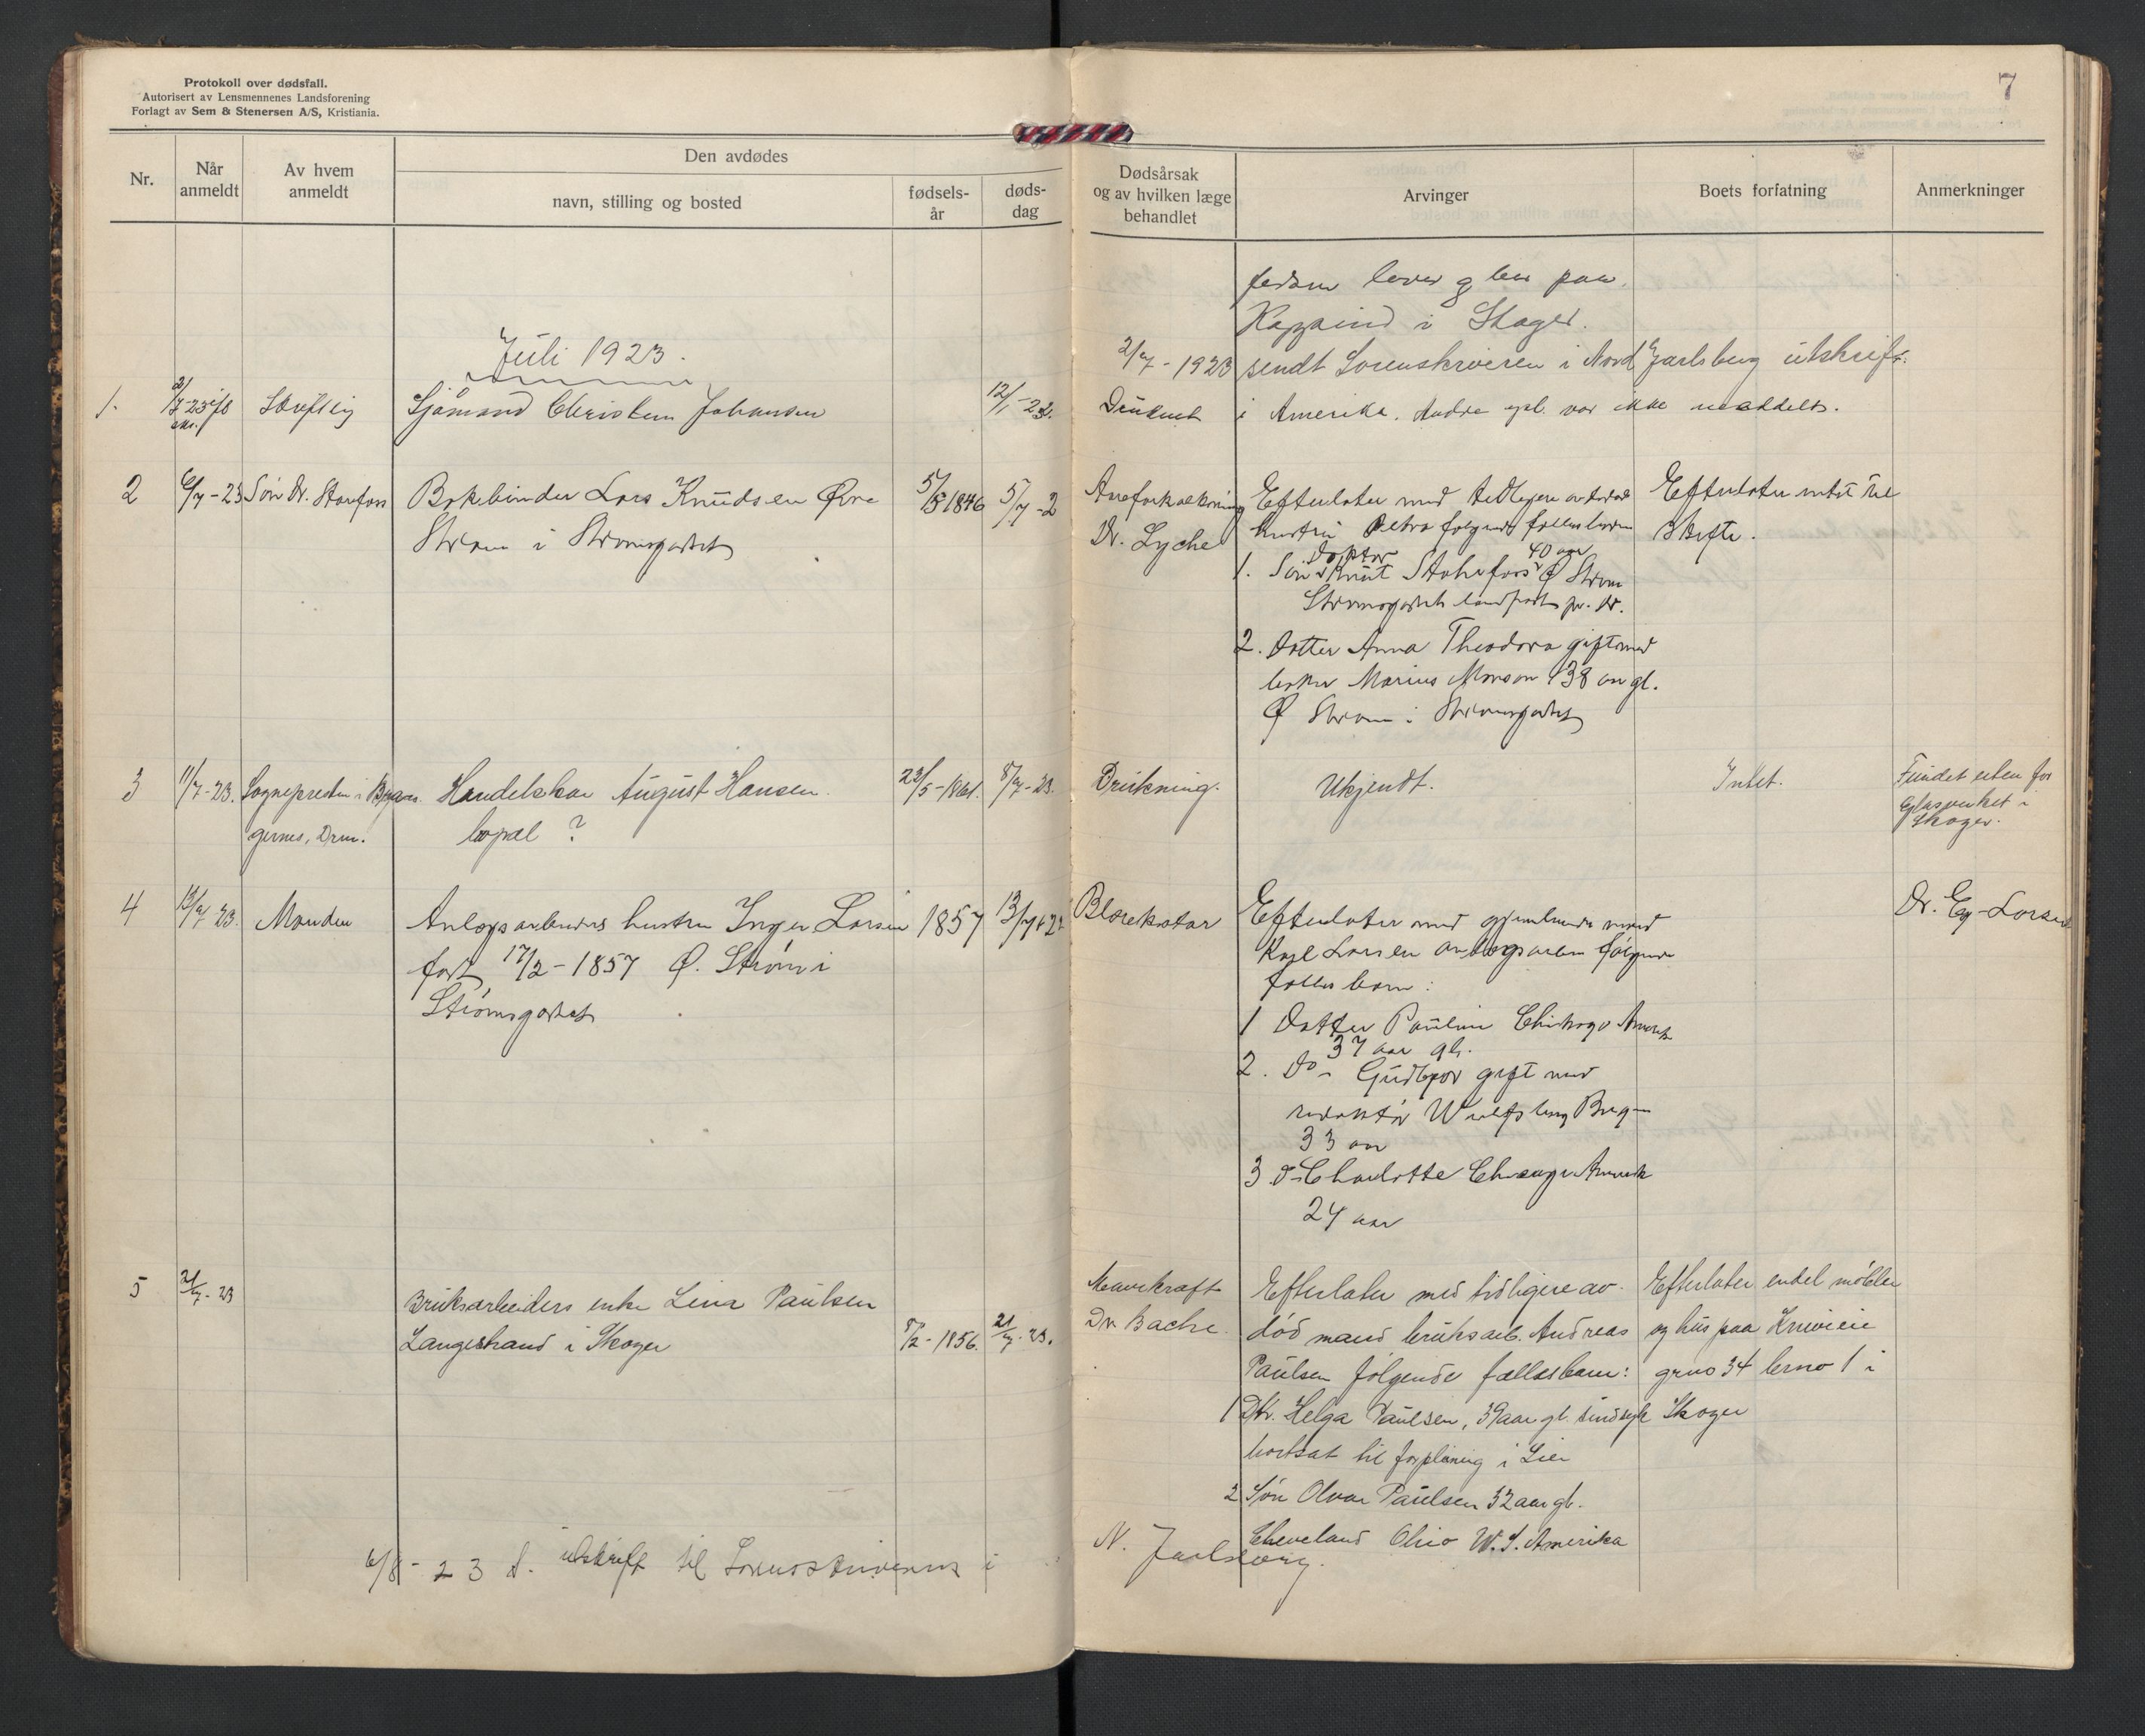 Protokoll over dødsfall.
Autorisert av Lensmennenes Landsforening
Forlagt av Sem & Stenersen A/S, Kristiania.
7
Nr.
Når
anmeldt
Av hvem
anmeldt
Den avdødes
navn, stilling og bosted
fødsels-
år
døds-
dag
Dødsårsak
og av hvilken læge
behandlet
Arvinger
Boets forfatning
Anmerkninger
lever og bor paa
i Skoger.
Juli 1923.
2/7-1923 sendt Sorenskriveren i Nord Jarlsberg utskrift.
1.
2/7-23
Skriftlig
Sjømand Christian Johansen
12/1-23.
Druknet
i Amerika. Andre opl. var ikke meddelt.
2
6/7-23
Søn Dr. Storfoss
Bokbinder Lars Knudsen Øvre
Strøm i Strømsgodset
5/5 1846
5/7-2
Areforkalkning
Dr. Lyche
Efterlater med tidligere avdøde
hustru Petra følgende fællesbørn
1. Søn Doktor Knut Storfoss 40 aar Ø Strøm
Strømsgodset landpost pr. Dr.
2. Datter Anna Theodora gift med
Marius 38 aar gl.
Ø Strøm i Strømsgodset
Efterlater intet til
Skifte.
3
11/7-23.
Sognepresten i Bra-
gernes, Drm.
Handelskar August Hansen.
bopæl ?
23/5-1861.
8/7-23.
Drukning.
Ukjendt.
Intet.
Fundet uten for
Glasverket i
Skoger.
4
13/7-23.
Manden
Anlægsarbeiders hustru Inger Larsen
født 17/2-1857 Ø. Strøm i
Strømsgodset
1857
13/7-23
Blærekatar
Efterlater med gjenlevende mand
Karl Larsen anlægsarbeider følgende
fælles barn:
1 Datter Pauline Chikago Amerika
37 aar gl.
2. Do - Gudbjør gift med
redaktør
33 aar
3 Do - Charlotte Chicago Amerika
24 aar
Dr. Eg-Larsen
5
21/7-23
Bruksarbeiders enke Lina Paulsen
Langestrand i Skoger
8/2-1856.
21/7-23.
Mavekræft
Dr. Bache.
Efterlater med tidligere av-
død mand bruksarb. Andreas
Paulsen følgende fællesbarn:
1 Dtr. Helga Paulsen, 39 aar gl. sindsyk
bortsat til forpleining i Lier
2 Søn Olvar Paulsen 32 aar gl.
Cleveland Ohio W.S. Amerika
Efterlater endel møbler
og hus paa Kniveie
grno 34 brno 1 i
Skoger
6/8-23 S. utskrift til Sorenskriveren i
N. Jarlsberg.